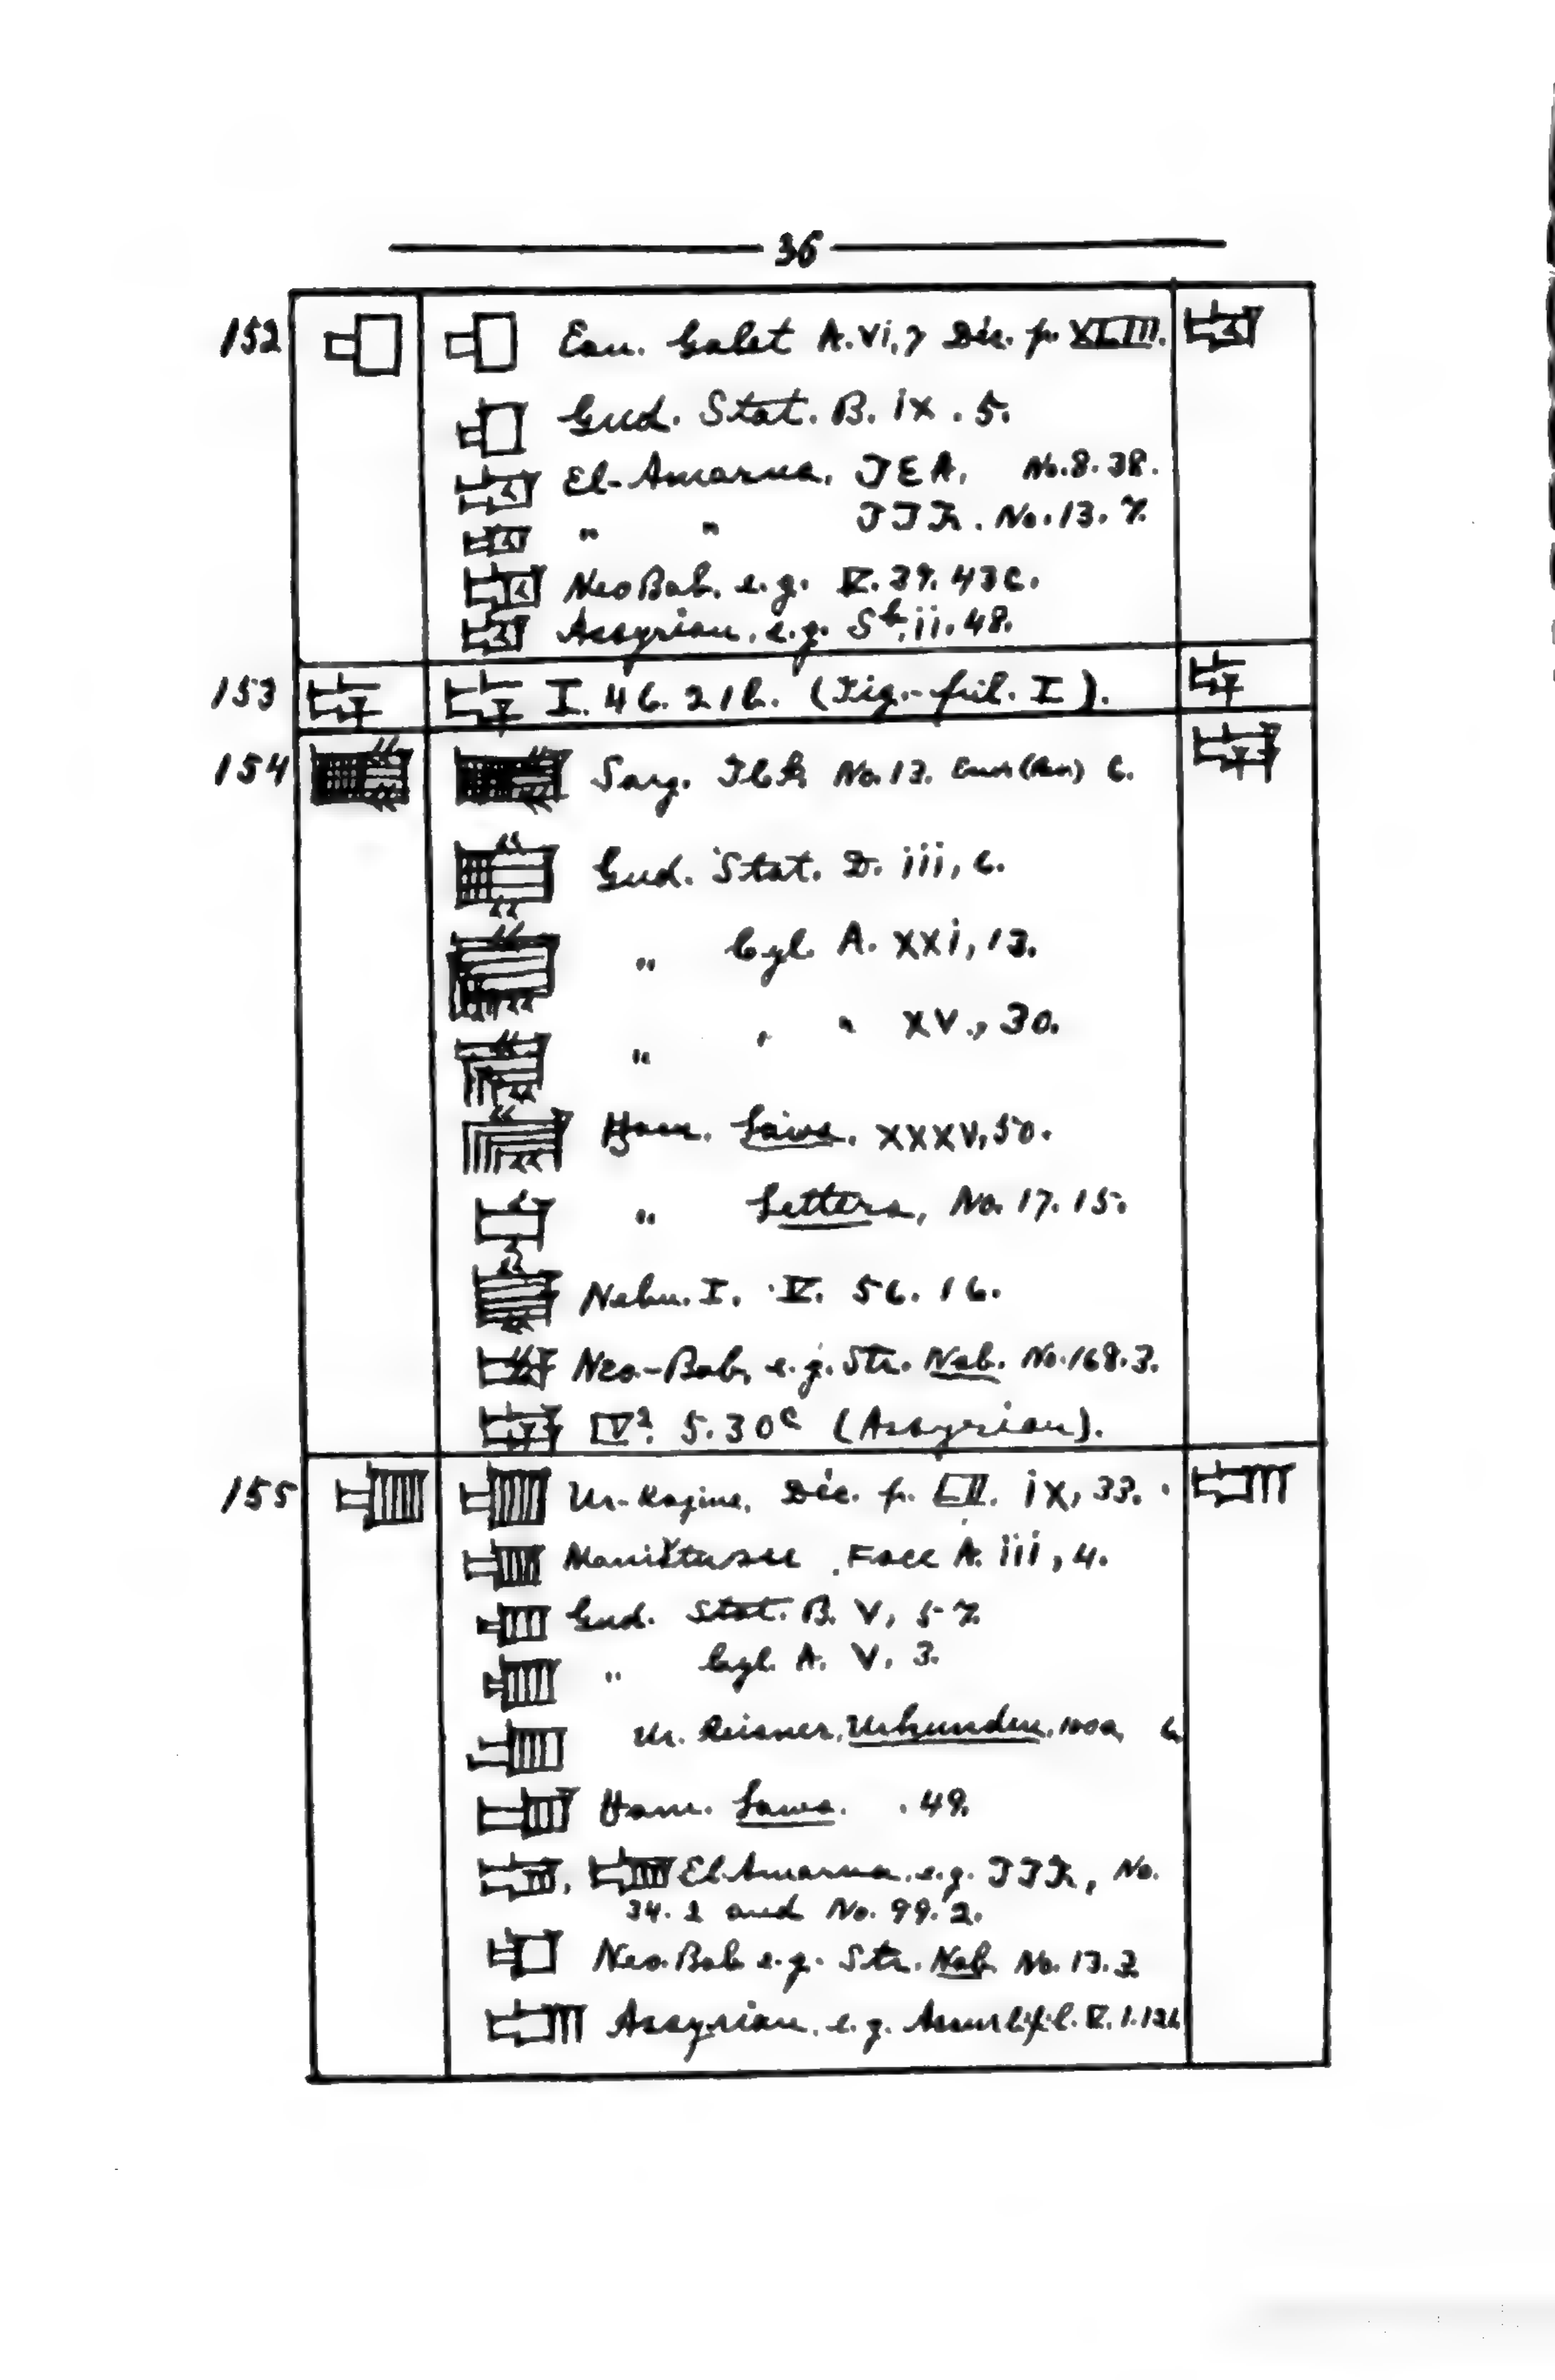 36
152 Ean. Galet A. vi, 7 Déc. p. XLIII.
Gud. Stat. B. ix. 5.
El-Amarna, JEA, No. 8. 38.
" " No. 13. 7.
Neo Bab. e.g. V. 39. 43c.
Assyrian, e.g. Sb, ii. 48.
153 I. 46. 21b. (Tig.-pil. I).
154 Sarg. No. 13. 6.
Gud. Stat. D. iii, 6.
" Cyl. A. xxi, 13.
" " " XV, 30.
Ham. Laws. xxxv, 50.
" Letters, No. 17. 15.
Nebu. I. V. 56. 16.
Neo-Bab, e.g. Str. Nab. No. 168. 3.
IV². 5. 30c (Assyrian).
155 Ur-Kagina, Déc. p. LII. ix, 33.
Maništusu, Face A. iii, 4.
Gud. Stat. B. V, 57.
" Cyl. A. V. 3.
Ur. Reisner, Urkunden, 6
Ham. Laws. . 49.
, El-Amarna, e.g. No.
34. 2 and No. 99. 2.
Neo. Bab e.g. Str. Nab. No. 13. 3
Assyrian, e.g. V. 1. 12b